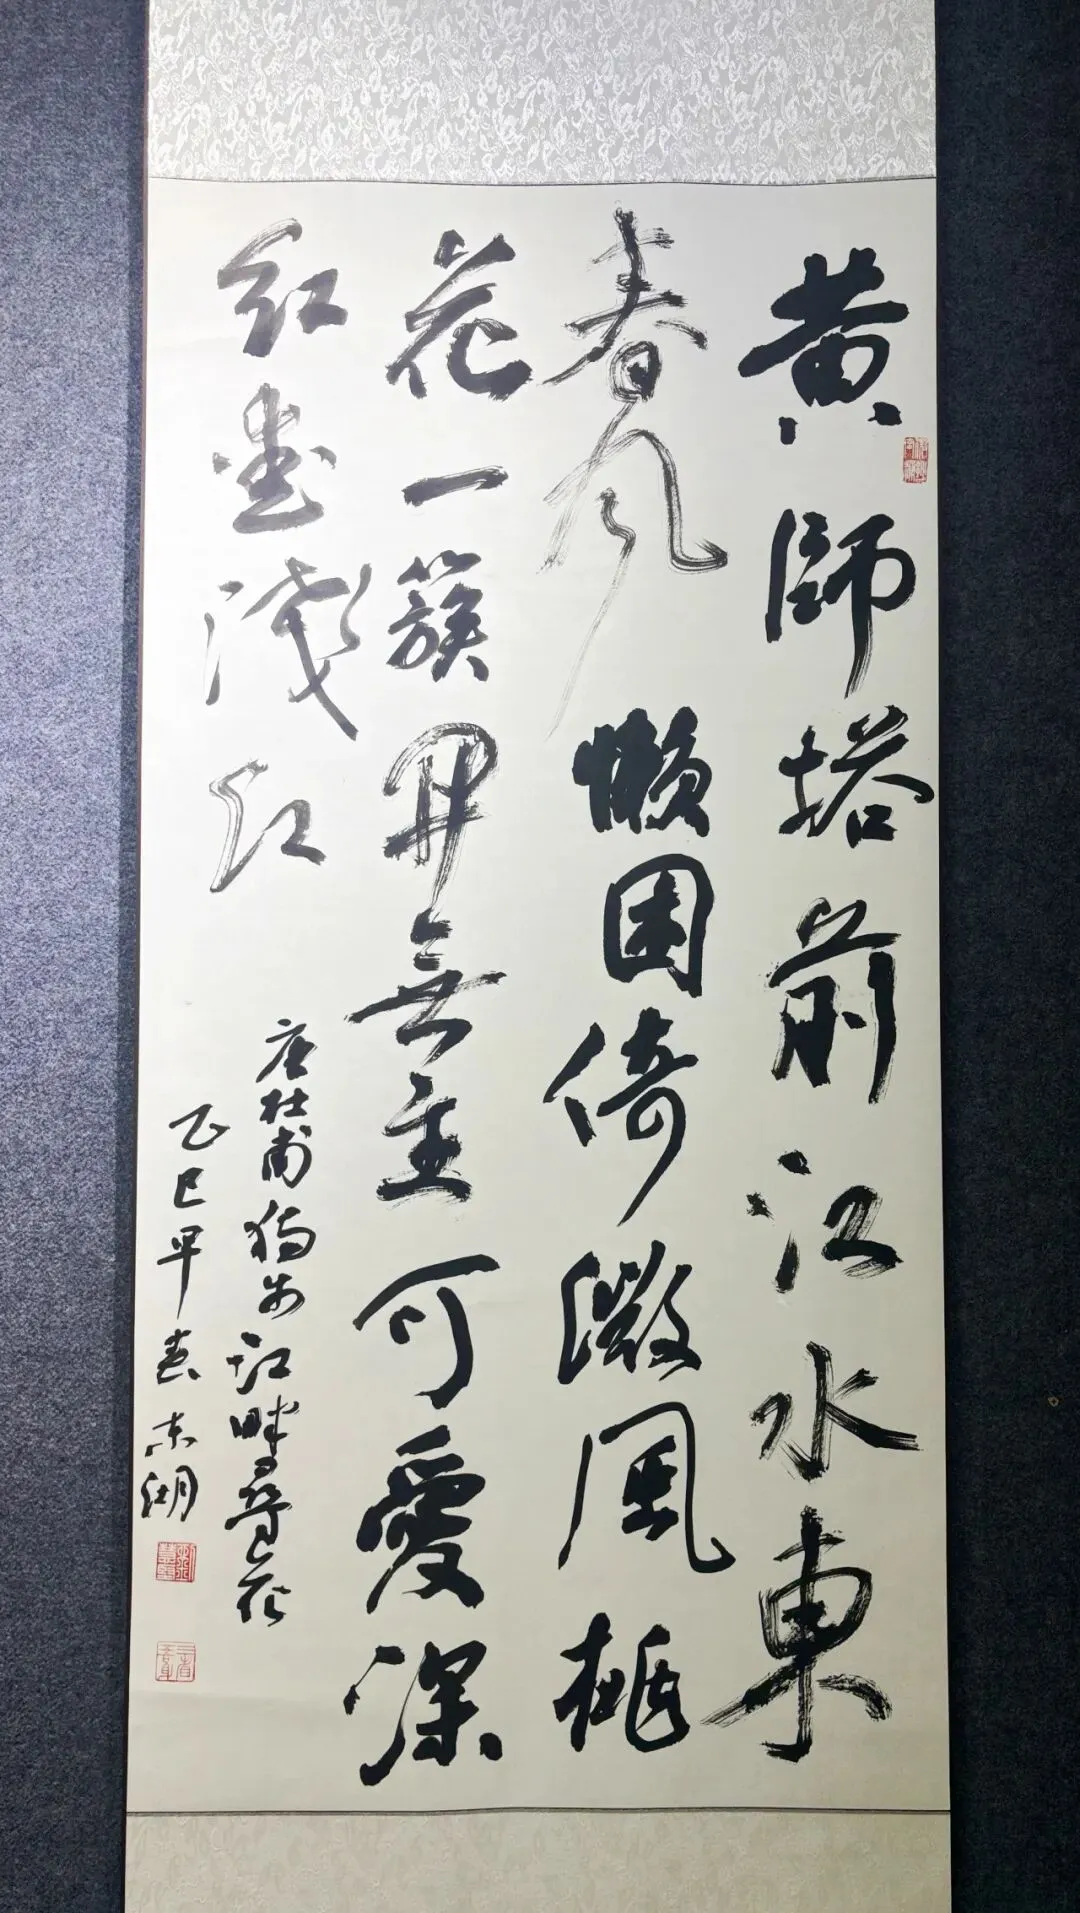 黄師塔前江水東
春风懶困倚微風桃
花一簇開無主可愛深
紅愛淺紅
唐杜甫獨步江畔尋花
乙巳早春东湖